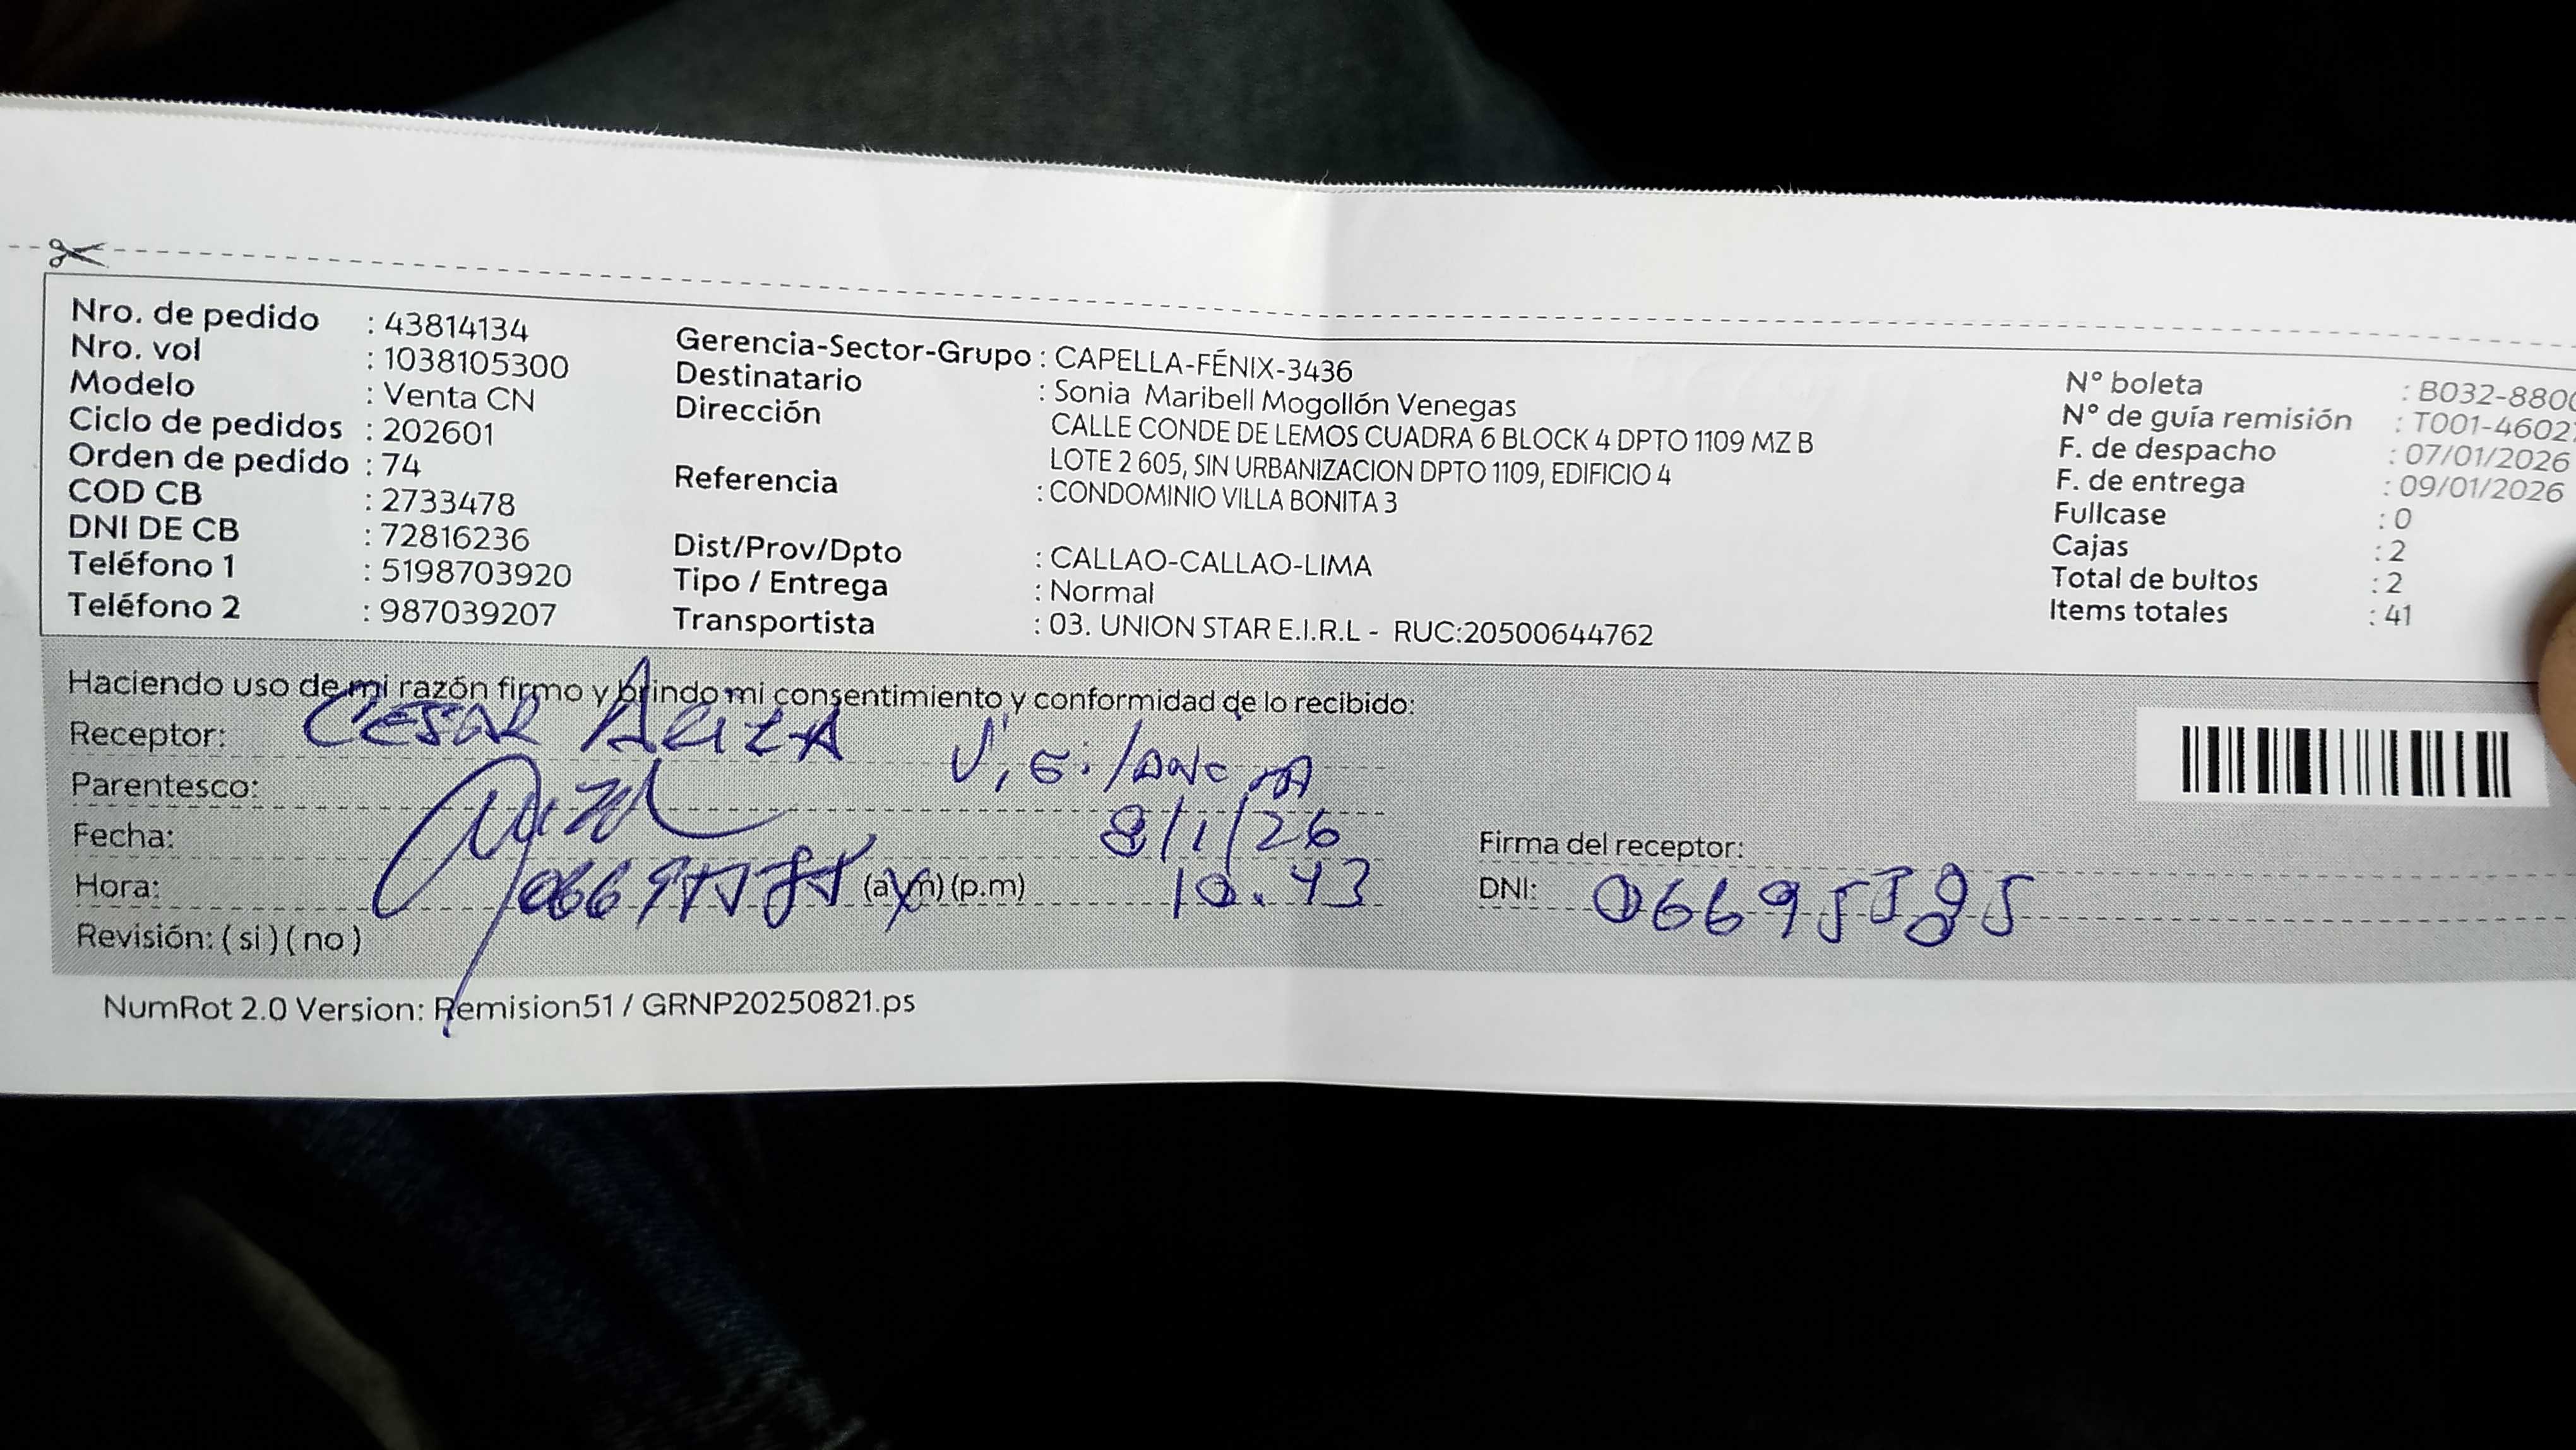 Nro. de pedido : 43814134
Nro. vol : 1038105300
Modelo : Venta CN
Ciclo de pedidos : 202601
Orden de pedido : 74
COD CB : 2733478
DNI DE CB : 72816236
Teléfono 1 : 5198703920
Teléfono 2 : 987039207
Gerencia-Sector-Grupo : CAPELLA-FÉNIX-3436
Destinatario : Sonia Maribell Mogollón Venegas
Dirección CALLE CONDE DE LEMOS CUADRA 6 BLOCK 4 DPTO 1109 MZ B
LOTE 2 605, SIN URBANIZACION DPTO 1109, EDIFICIO 4
Referencia : CONDOMINIO VILLA BONITA 3
Dist/Prov/Dpto : CALLAO-CALLAO-LIMA
Tipo / Entrega : Normal
Transportista : 03. UNION STAR E.I.R.L - RUC:20500644762
N° boleta : B032-880
N° de guía remisión : T001-4602
F. de despacho : 07/01/2026
F. de entrega : 09/01/2026
Fullcase : 0
Cajas : 2
Total de bultos : 2
Items totales : 41
Haciendo uso de mi razón firmo y brindo mi consentimiento y conformidad de lo recibido:
Receptor: CESAR
Parentesco:
Fecha: 8/1/26
Hora: (a.m) (p.m) 10.43
Revisión: ( si ) ( no )
Firma del receptor:
DNI:
NumRot 2.0 Version: Remision51 / GRNP20250821.ps